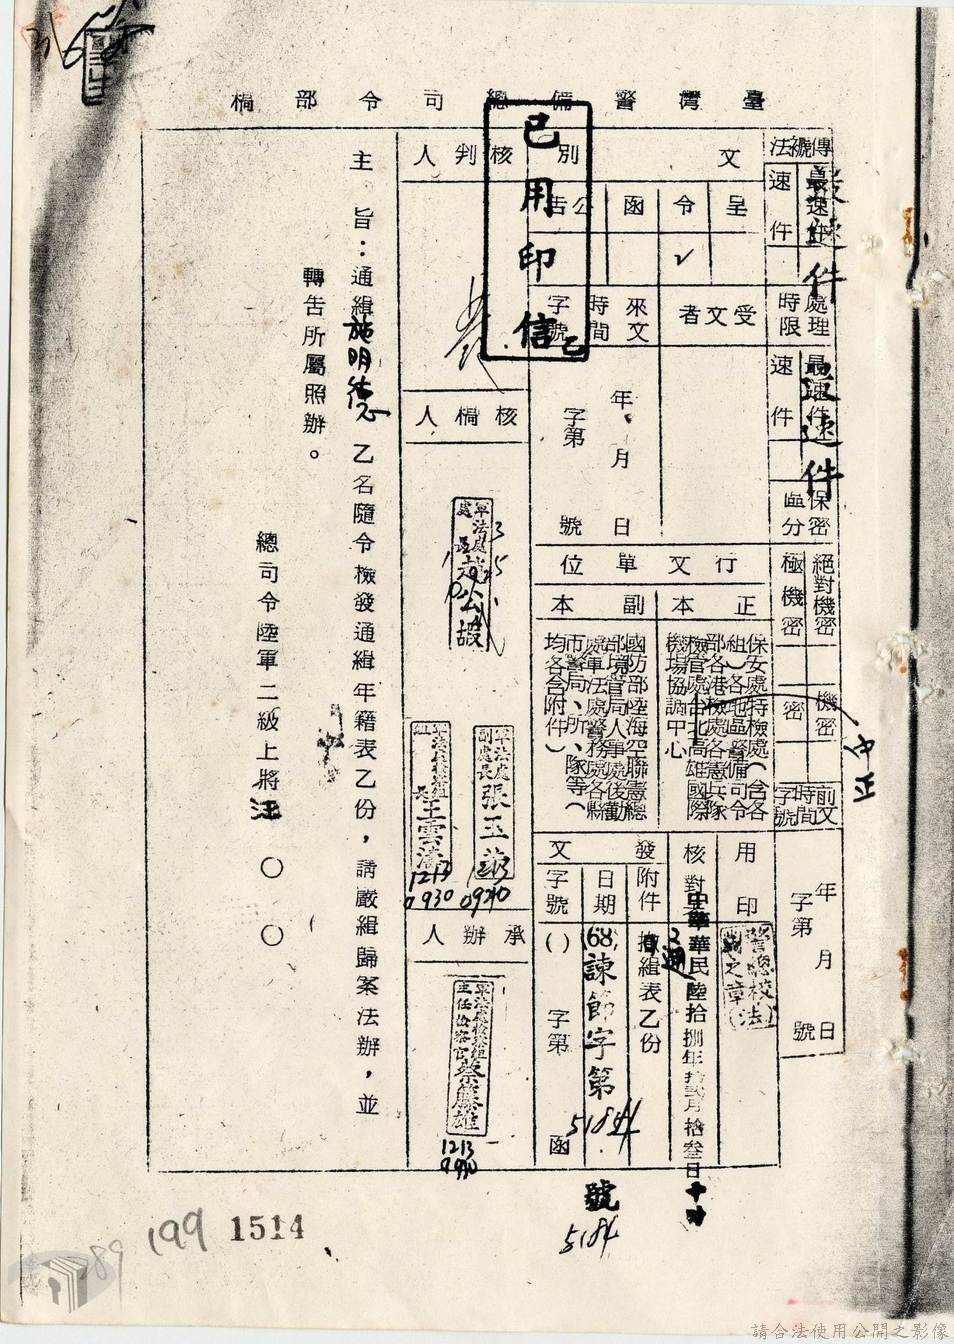 臺灣警備總司令部稿
傳遞法
最速件
速件
最速件
處理時限
最速件
速件
最速件
保密區分
絕對機密
極機密
機密
密
中正
前文時間字號
年月日
字第號
文別
呈
令
函
公告
✓
已用印信
乙
受文者
來文時間字號
年月日
字第號
行文單位
正本
副本
保安處特檢處(含各
組)各地區警備司令
部各港檢處各憲兵隊
檢管處台北高雄國際
機場協調中心
國防部陸海空聯憲總
部境管局人事處後勤
處軍法處警務處各縣
市警局、所、隊等(
均各含附件)
用印
核對
中華民國陸拾捌年拾貳月拾叁日
發文
附件
通緝表乙份
日期
字號
(68)諫節字第5184號
()字第 函
5184
核判人
核稿人
軍法處處長
軍法處副處長張玉
1213
0930
承辦人
蔡籐雄
1213
0930
主旨:通緝施明德乙名隨令檢發通緝年籍表乙份,請嚴緝歸案法辦,並
轉告所屬照辦。
總司令陸軍二級上將汪〇〇
199
1514
89
請合法使用公開之影像